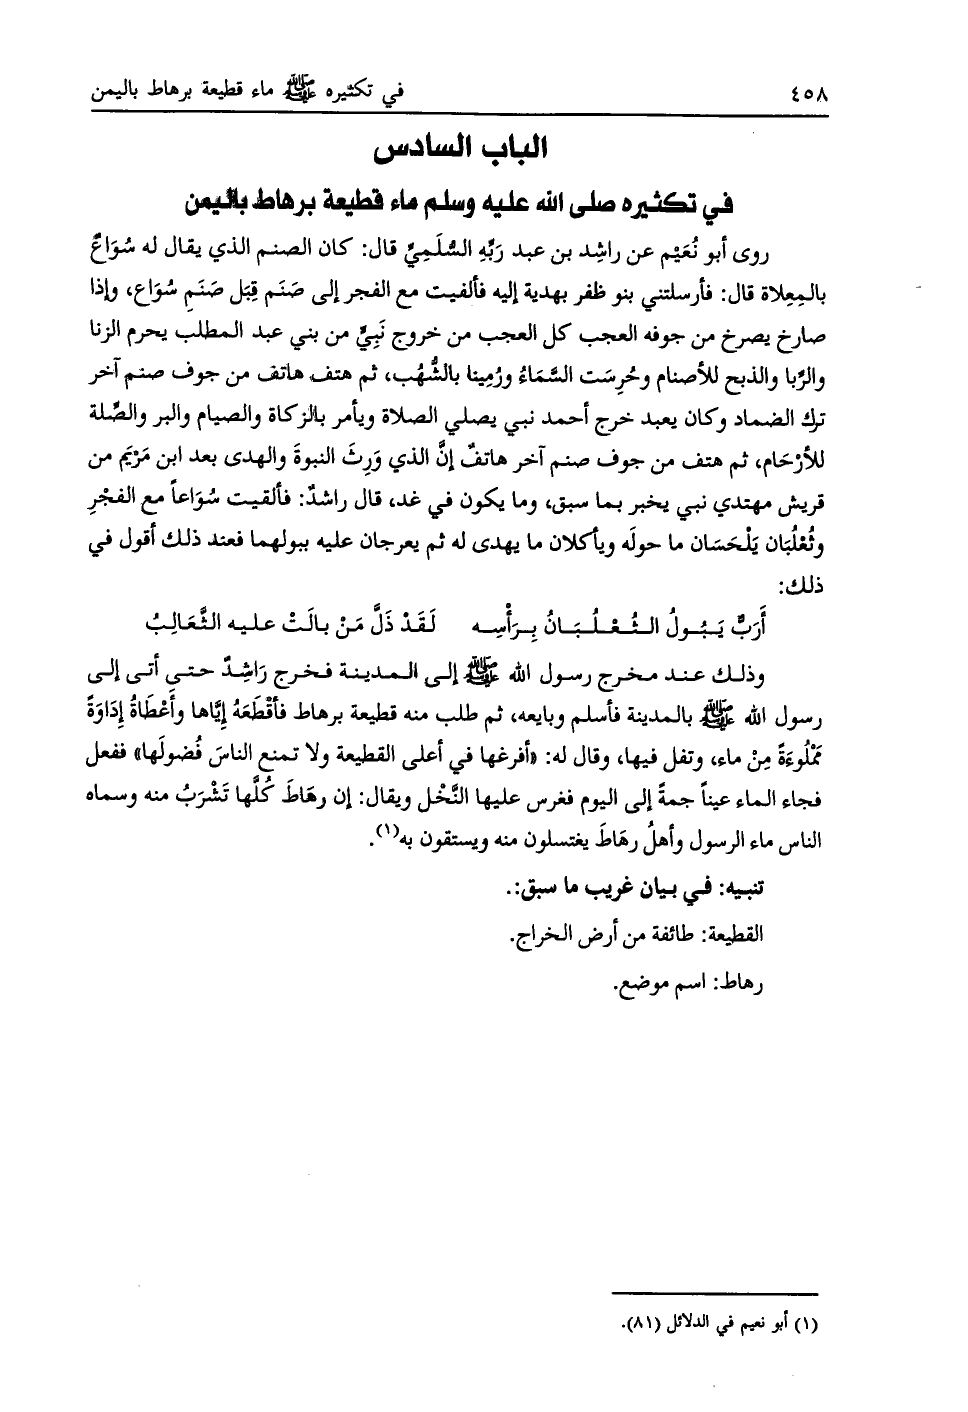 ٤٥٨ في تكثيره ﷺ ماء قطيعة برهاط باليمن
الباب السادس
في تكثيره صلى الله عليه وسلم ماء قطيعة برهاط باليمن
روى أبو نُعَيْم عن راشِد بن عبد رَبِّهِ السُّلَمِيِّ قال: كان الصنم الذي يقال له سُوَاعٌ
بالمِعِلاة قال: فأرسلتني بنو ظفر بهدية إليه فألفيت مع الفجر إلى صَنَم قِبَل صَنَمِ سُوَاع، وإذا
صارخ يصرخ من جوفه العجب كل العجب من خروج نَبِيٍّ من بني عبد المطلب يحرم الزنا
والرِّبا والذبح للأصنام وحُرِسَت السَّمَاءُ ورُمِينا بالشُّهُب، ثم هتف هاتف من جوف صنم آخر
ترك الضماد وكان يعبد خرج أحمد نبي يصلي الصلاة ويأمر بالزكاة والصيام والبر والصِّلة
للأرْحَام، ثم هتف من جوف صنم آخر هاتفٌ إنَّ الذي وَرِثَ النبوةَ والهدى بعد ابن مَرْيَم من
قريش مهتدي نبي يخبر بما سبق، وما يكون في غد، قال راشدٌ: فألقيت سُوَاعاً مع الفجْرِ
وثُعْلُبَان يَلْحَسَان ما حولَه ويأكلان ما يهدى له ثم يعرجان عليه ببولهما فعند ذلك أقول في
ذلك:
أَرَبٌّ يَبُولُ الثُعْلُبَانُ بِرَأْسِه لَقَدْ ذَلَّ مَنْ بالَتْ عليه الثَّعَالِبُ
وذلك عند مخرج رسول الله ﷺ إلى المدينة فخرج رَاشِدٌ حتى أتى إلى
رسول الله ﷺ بالمدينة فأسلم وبايعه، ثم طلب منه قطيعة برهاط فأقْطَعَهُ إيَّاها وأَعْطَاهُ إدَاوَةً
مَمْلُوءَةً مِنْ ماء، وتفل فيها، وقال له: «أفرغها في أعلى القطيعة ولا تمنع الناسَ فُضولَها» ففعل
فجاء الماء عيناً جمةً إلى اليوم فغرس عليها النَّخْل ويقال: إن رهَاطَ كُلَّها تَشْرَبُ منه وسماه
الناس ماء الرسول وأهلُ رهَاطَ يغتسلون منه ويستقون به(١).
تنبيه: في بيان غريب ما سبق:.
القطيعة: طائفة من أرض الخراج.
رهاط: اسم موضع.
(١) أبو نعيم في الدلائل (٨١).